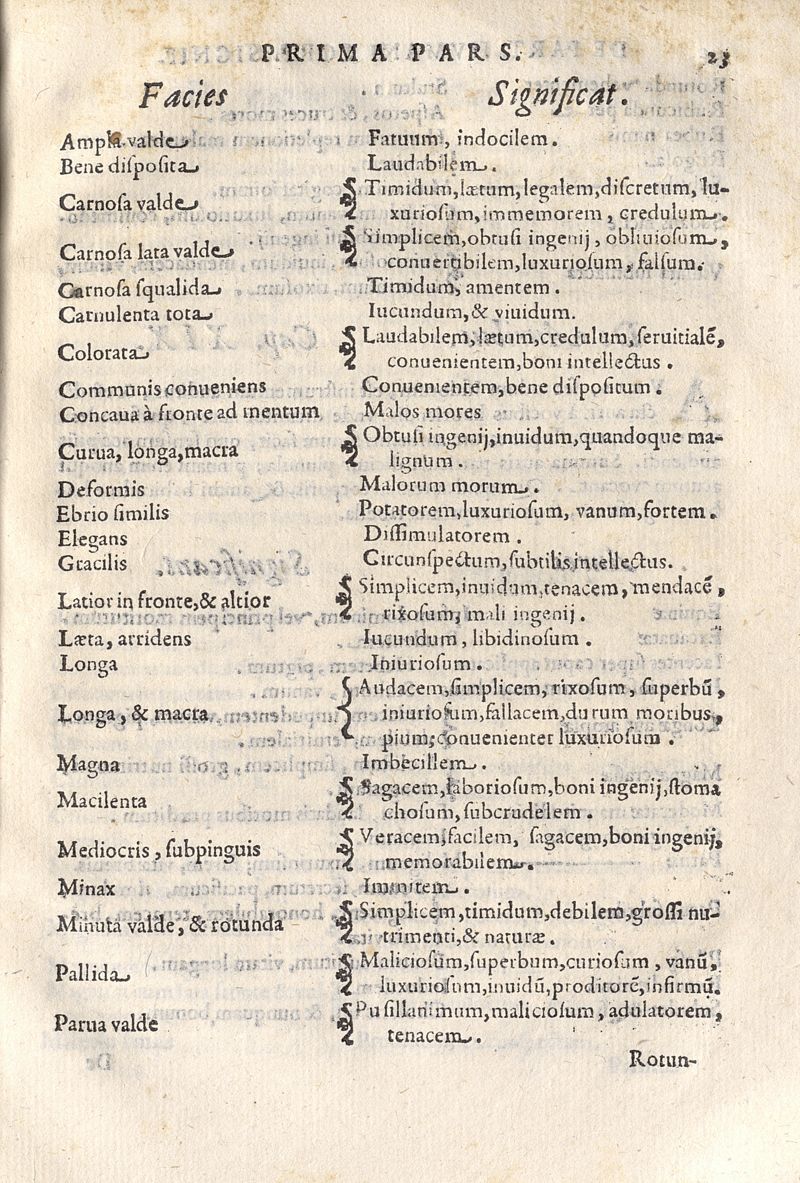 PRIMA PARS. 23
Facies Significat.
Ampla valde Fatuum, indocilem.
Bene disposita Laudabilem.
Carnosa valde Timidum, lætum, legalem, discretum, lu-
xuriosum, immemorem, credulum.
Carnosa lata valde Simplicem, obtusi ingenij, obliuiosum,
conuertibilem, luxuriosum, falsum.
Carnosa squalida Timidum, amentem.
Carnulenta tota Iucundum, & viuidum.
Colorata Laudabilem, lætum, credulum, seruitialẽ,
conuenientem, boni intellectus.
Communis conueniens Conuenientem, bene dispositum.
Concaua à fronte ad mentum Malos mores
Curua, longa, macra Obtusi ingenij, inuidum, quandoque ma-
lignum.
Deformis Malorum morum.
Ebrio similis Potatorem, luxuriosum, vanum, fortem.
Elegans Dissimulatorem.
Gracilis Circunspectum, subtilis intellectus.
Latior in fronte, & altior Simplicem, inuidum, tenacem, mendacẽ,
rixosum, mali ingenij.
Læta, arridens Iucundum, libidinosum.
Longa Iniuriosum.
Longa, & macra Audacem, simplicem, rixosum, superbũ,
iniuriosum, fallacem, durum moribus,
pium, conuenienter luxuriosum.
Magna Imbecillem.
Macilenta Sagacem, laboriosum, boni ingenij, stoma
chosum, subcrudelem.
Mediocris, subpinguis Veracem, facilem, sagacem, boni ingenij,
memorabilem.
Minax Immitem.
Minuta valde, & rotunda Simplicem, timidum, debilem, grossi nu-
trimenti, & naturæ.
Pallida Maliciosum, superbum, curiosum, vanũ,
luxuriosum, inuidũ, proditorẽ, infirmũ.
Parua valde Pusillanimum, maliciosum, adulatorem,
tenacem.
Rotun-